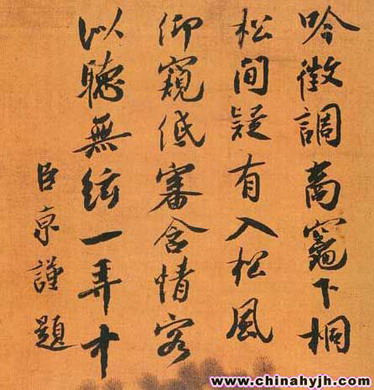 吟徵調商竈下桐
松間疑有入松風
仰窺低審含情客
似聽無絃一弄中
臣京謹題
www.chinahyjh.com